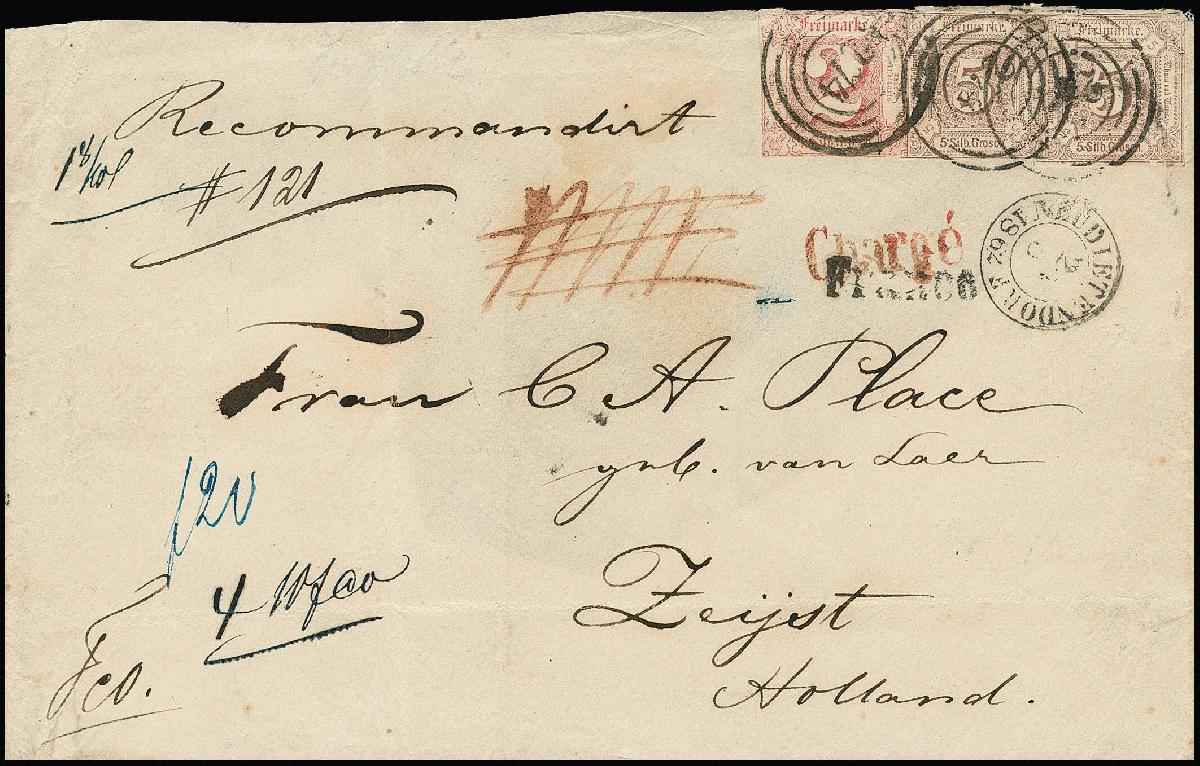 Freimarke Freimarke Freimarke
5 Silb. Grosch. 5 Silb. Grosch.
Recommandirt
# 121
Chargé
Franco
NEUDIETENDORF
Frau C A. Place
geb. van Laer
Zeijst
Holland.
fco.